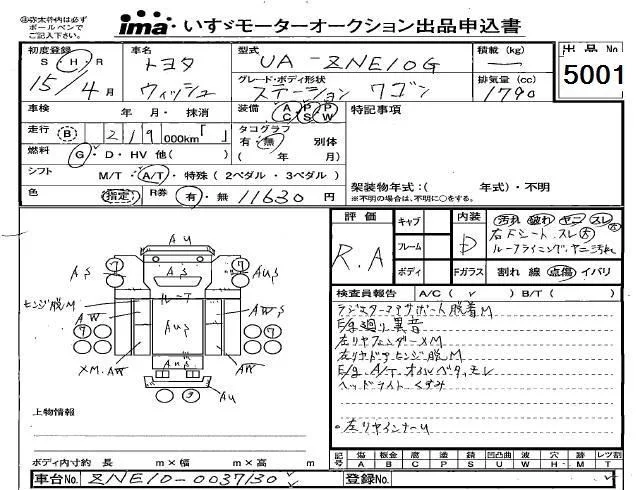 ㊟太枠内は必ず
ボールペンで
ご記入下さい。
ima いすゞモーターオークション出品申込書
初度登録 車名 型式 積載 (kg) 出品 No
S・H・R トヨタ UA-ZNE10G ー 5001
15/4月 ウィッシュ グレード・ボディ形状 排気量 (cc)
ステーションワゴン 1790
車検 年 月・抹消 装備 AC PS PW 特記事項
走行 B 219 000km「 」 タコグラフ
有・無 別体
燃料 G・D・HV 他( ) ( 年 月)
シフト M/T・A/T・特殊 (2ペダル・3ペダル) 架装物年式:( 年式)・不明
色 指定 R券 有・無 11630円 ※不明の場合は、不明に○をする。
評価 キャブ 内装 汚れ 破れ ヤニ スレ 大
R.A フレーム D 右Fシート スレ大
ルーフライニング.ヤニ汚れ
ボディ Fガラス 割れ 線 点傷 イバリ
検査員報告 A/C ( ✓ ) B/T ( )
ラジエターコアサポート脱着M
E/g廻り異音
左リヤフェンダーXM
左リヤドアヒンジ脱M
E/g.A/T.オイルベタ,モレ
ヘッドライト くすみ
左リヤインナーU
AU
7 7
AS AS AS AUS
ルーフ
ヒンジ脱M
AW AUS AWS
7 7
XM.AW AW
AU AU
9
上物情報
ボディ内寸約 長 m×幅 m×高 m
記号 傷A 板金B 腐C 塗P 錆S 凹凸曲U 波W 穴H 欠M レツ割T
車台No. ZNE10-0037130 登録No.